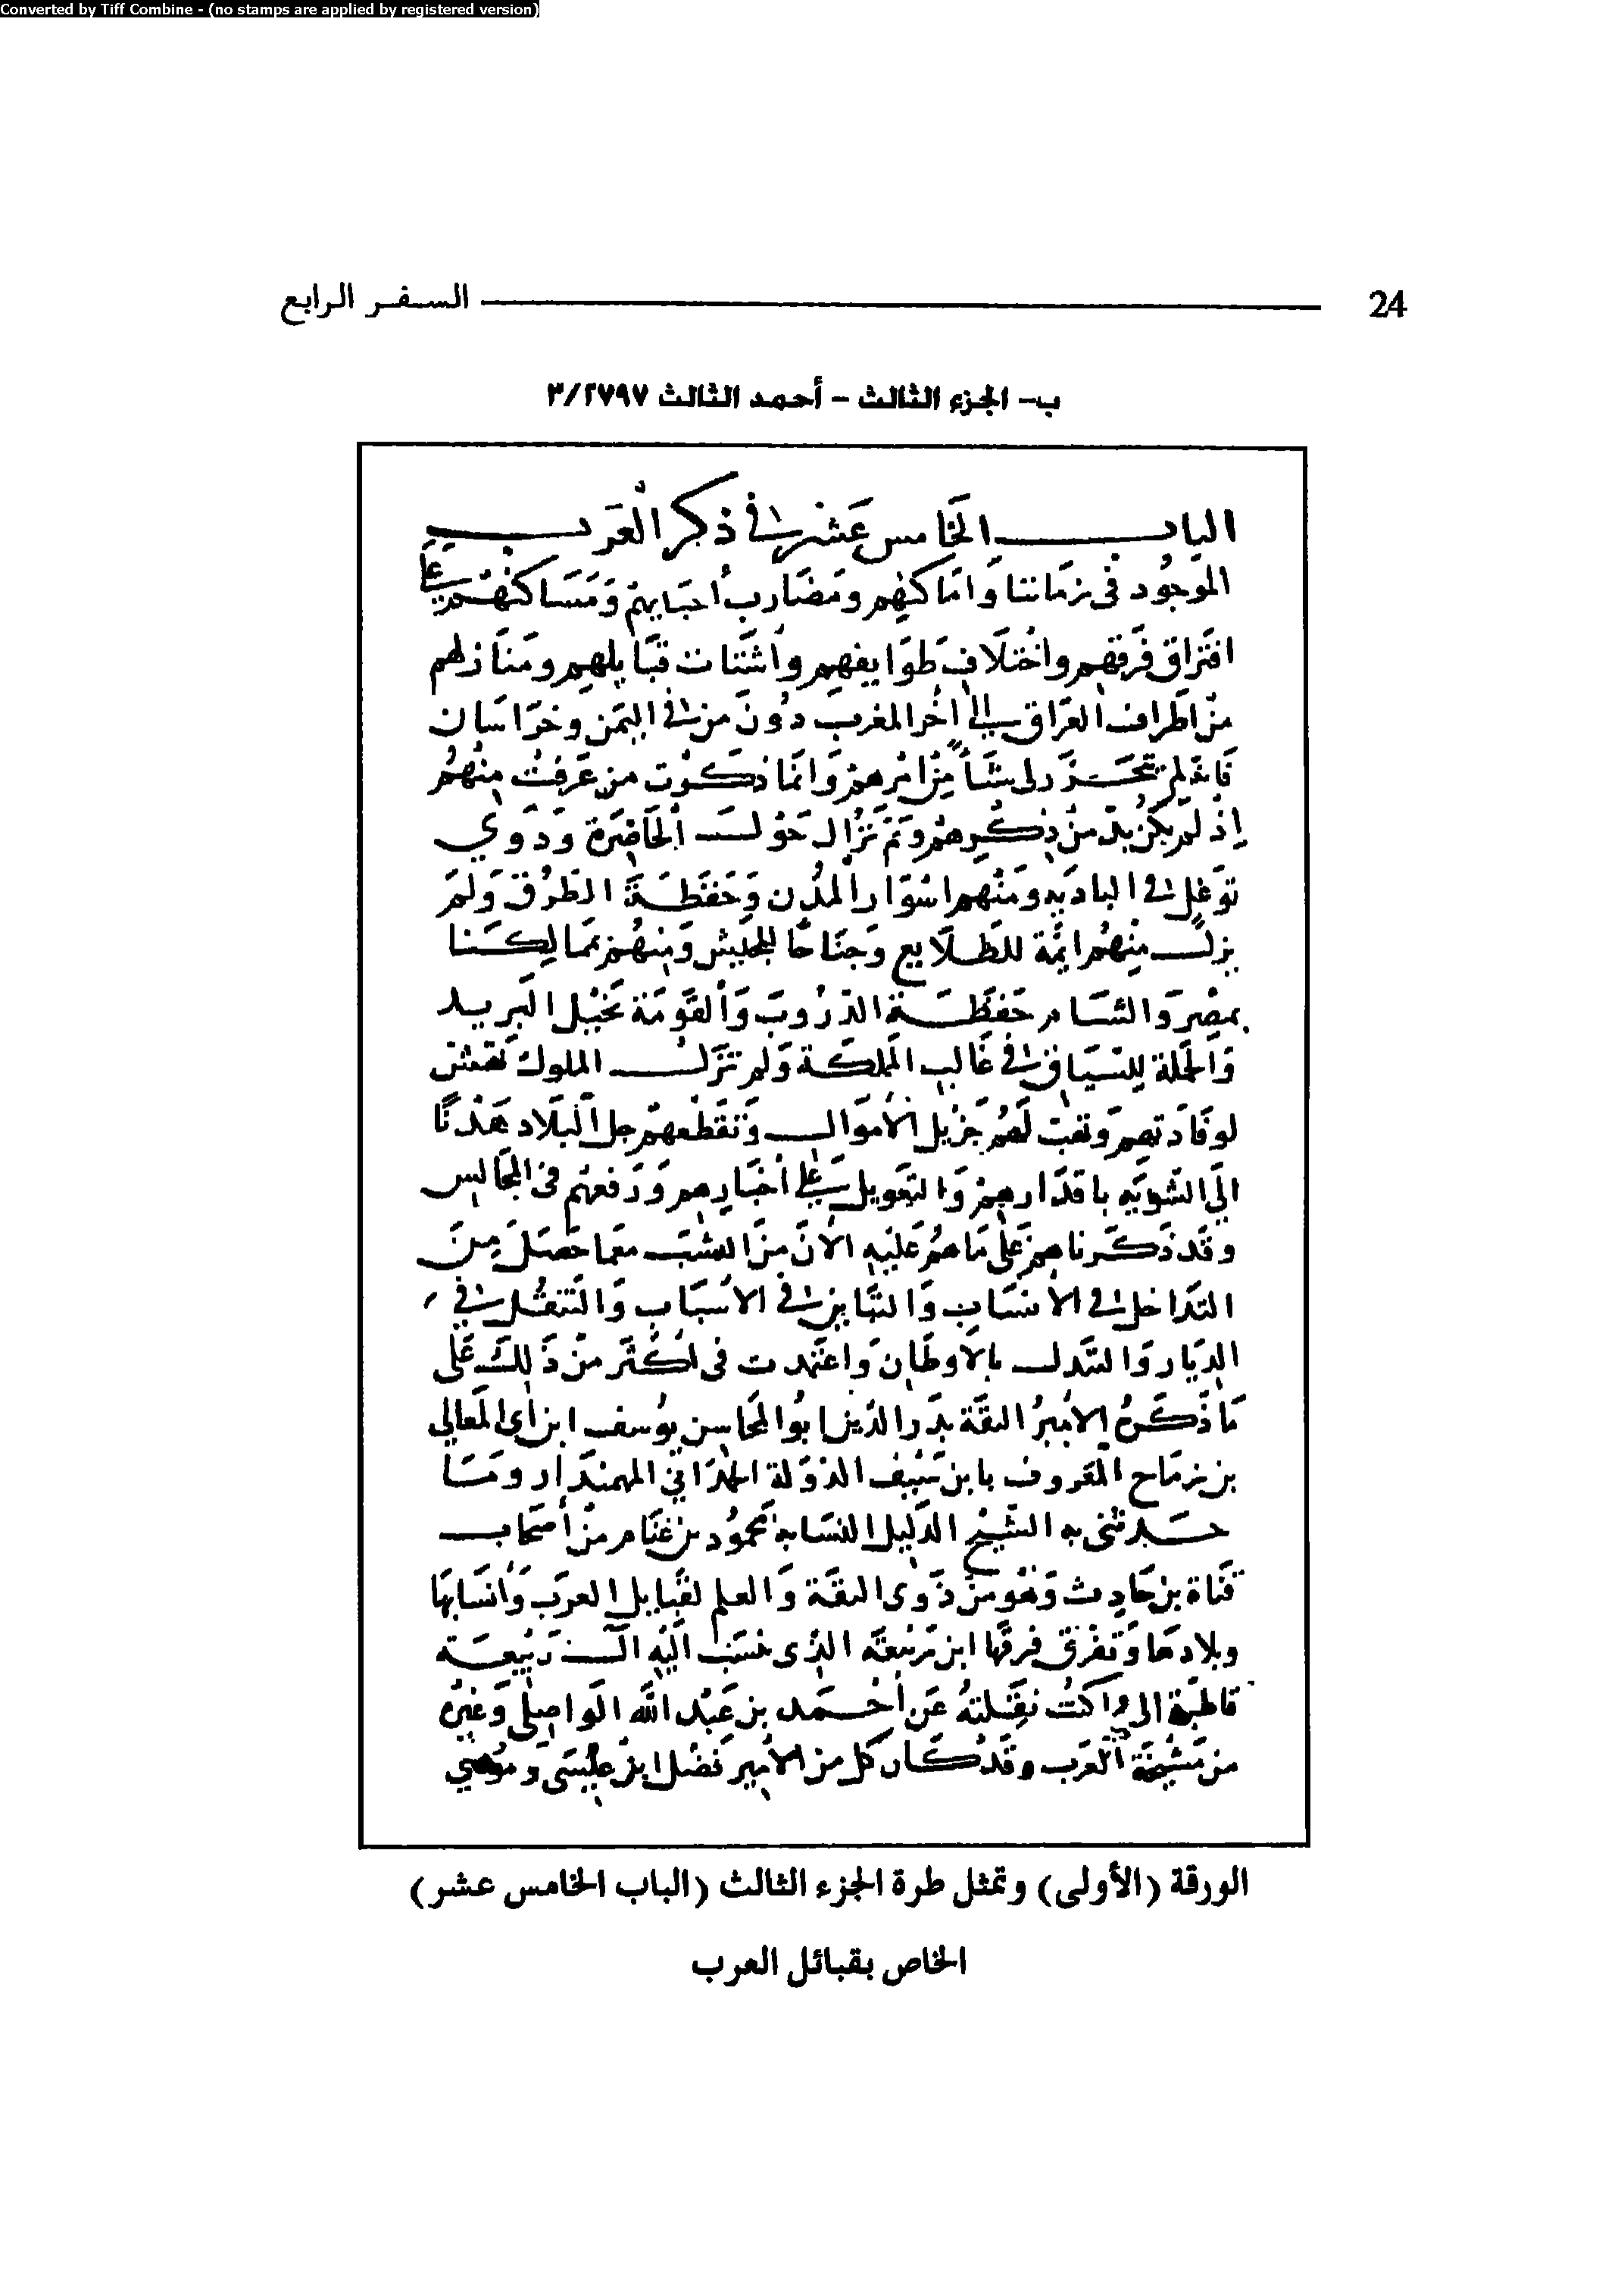 Converted by Tiff Combine - (no stamps are applied by registered version)
24 السفر الرابع
ب- الجزء الثالث - أحمد الثالث ٣/٢٧٩٧
الباب الخامس عشر في ذكر العرب
الموجود في زماننا وأماكنهم ومضارب أحيايهم ومساكنهم على
افتراق فرقهم واختلاف طوايفهم وأشتات قبايلهم ومنازلهم
من أطراف العراق إلى آخر المغرب دون من في اليمن وخراسان
فانه لم يتحرر لي شأ من أمرهم وانما ذكرت من عرفت منهم
إذ لم يكن بد من ذكرهم وهم نزال حول الحاضرة وذوي
توغل في الباديه ومنهم اسوار المدن وحفظة الطرق ولم
يزل منهم ايمة للطلايع وجناحا للجيش ومنهم بممالكنا
بمصر والشام حفظة الدروب والقومة بخيل البريد
والحملة للسياق في غالب المملكة ولم تزل الملوك تهش
لوفادتهم وتهب لهم جزيل الأموال وتقطعهم جل البلاد هذا
إلى التنويه باقدارهم والتعويل على أخبارهم ورفعهم في المجالس
وقد ذكرناهم على ما هم عليه الآن من النسب معما حصل من
التداخل في الأنساب والتباين في الأسباب والتنقل في
الديار والتبدل بالأوطان واعتمدت في أكثر من ذلك على
ما ذكره الأمير الثقة بدر الدين ابو المحاسن يوسف ابن أبي المعالي
بن زماح المعروف بابن سيف الدولة الحمداني المهمندار ومما
حدثني به الشيخ الدليل النسابة محمود بن غنام من أصحاب
قناة بن حارث وهو من ذوي الثقة والعلم لقبايل العرب وأنسابها
وبلادها وتفرق فرقها ابن ربيعة الذي نسب اليه آل ربيعة
قاطبة إلى ما كنت نقلته عن أحمد بن عبد الله الواصلي وغيره
من مشيخة العرب وقد كان كل من الأمير فضل بن عيسى وموسى
الورقة (الأولى) وتمثل طرة الجزء الثالث (الباب الخامس عشر)
الخاص بقبائل العرب